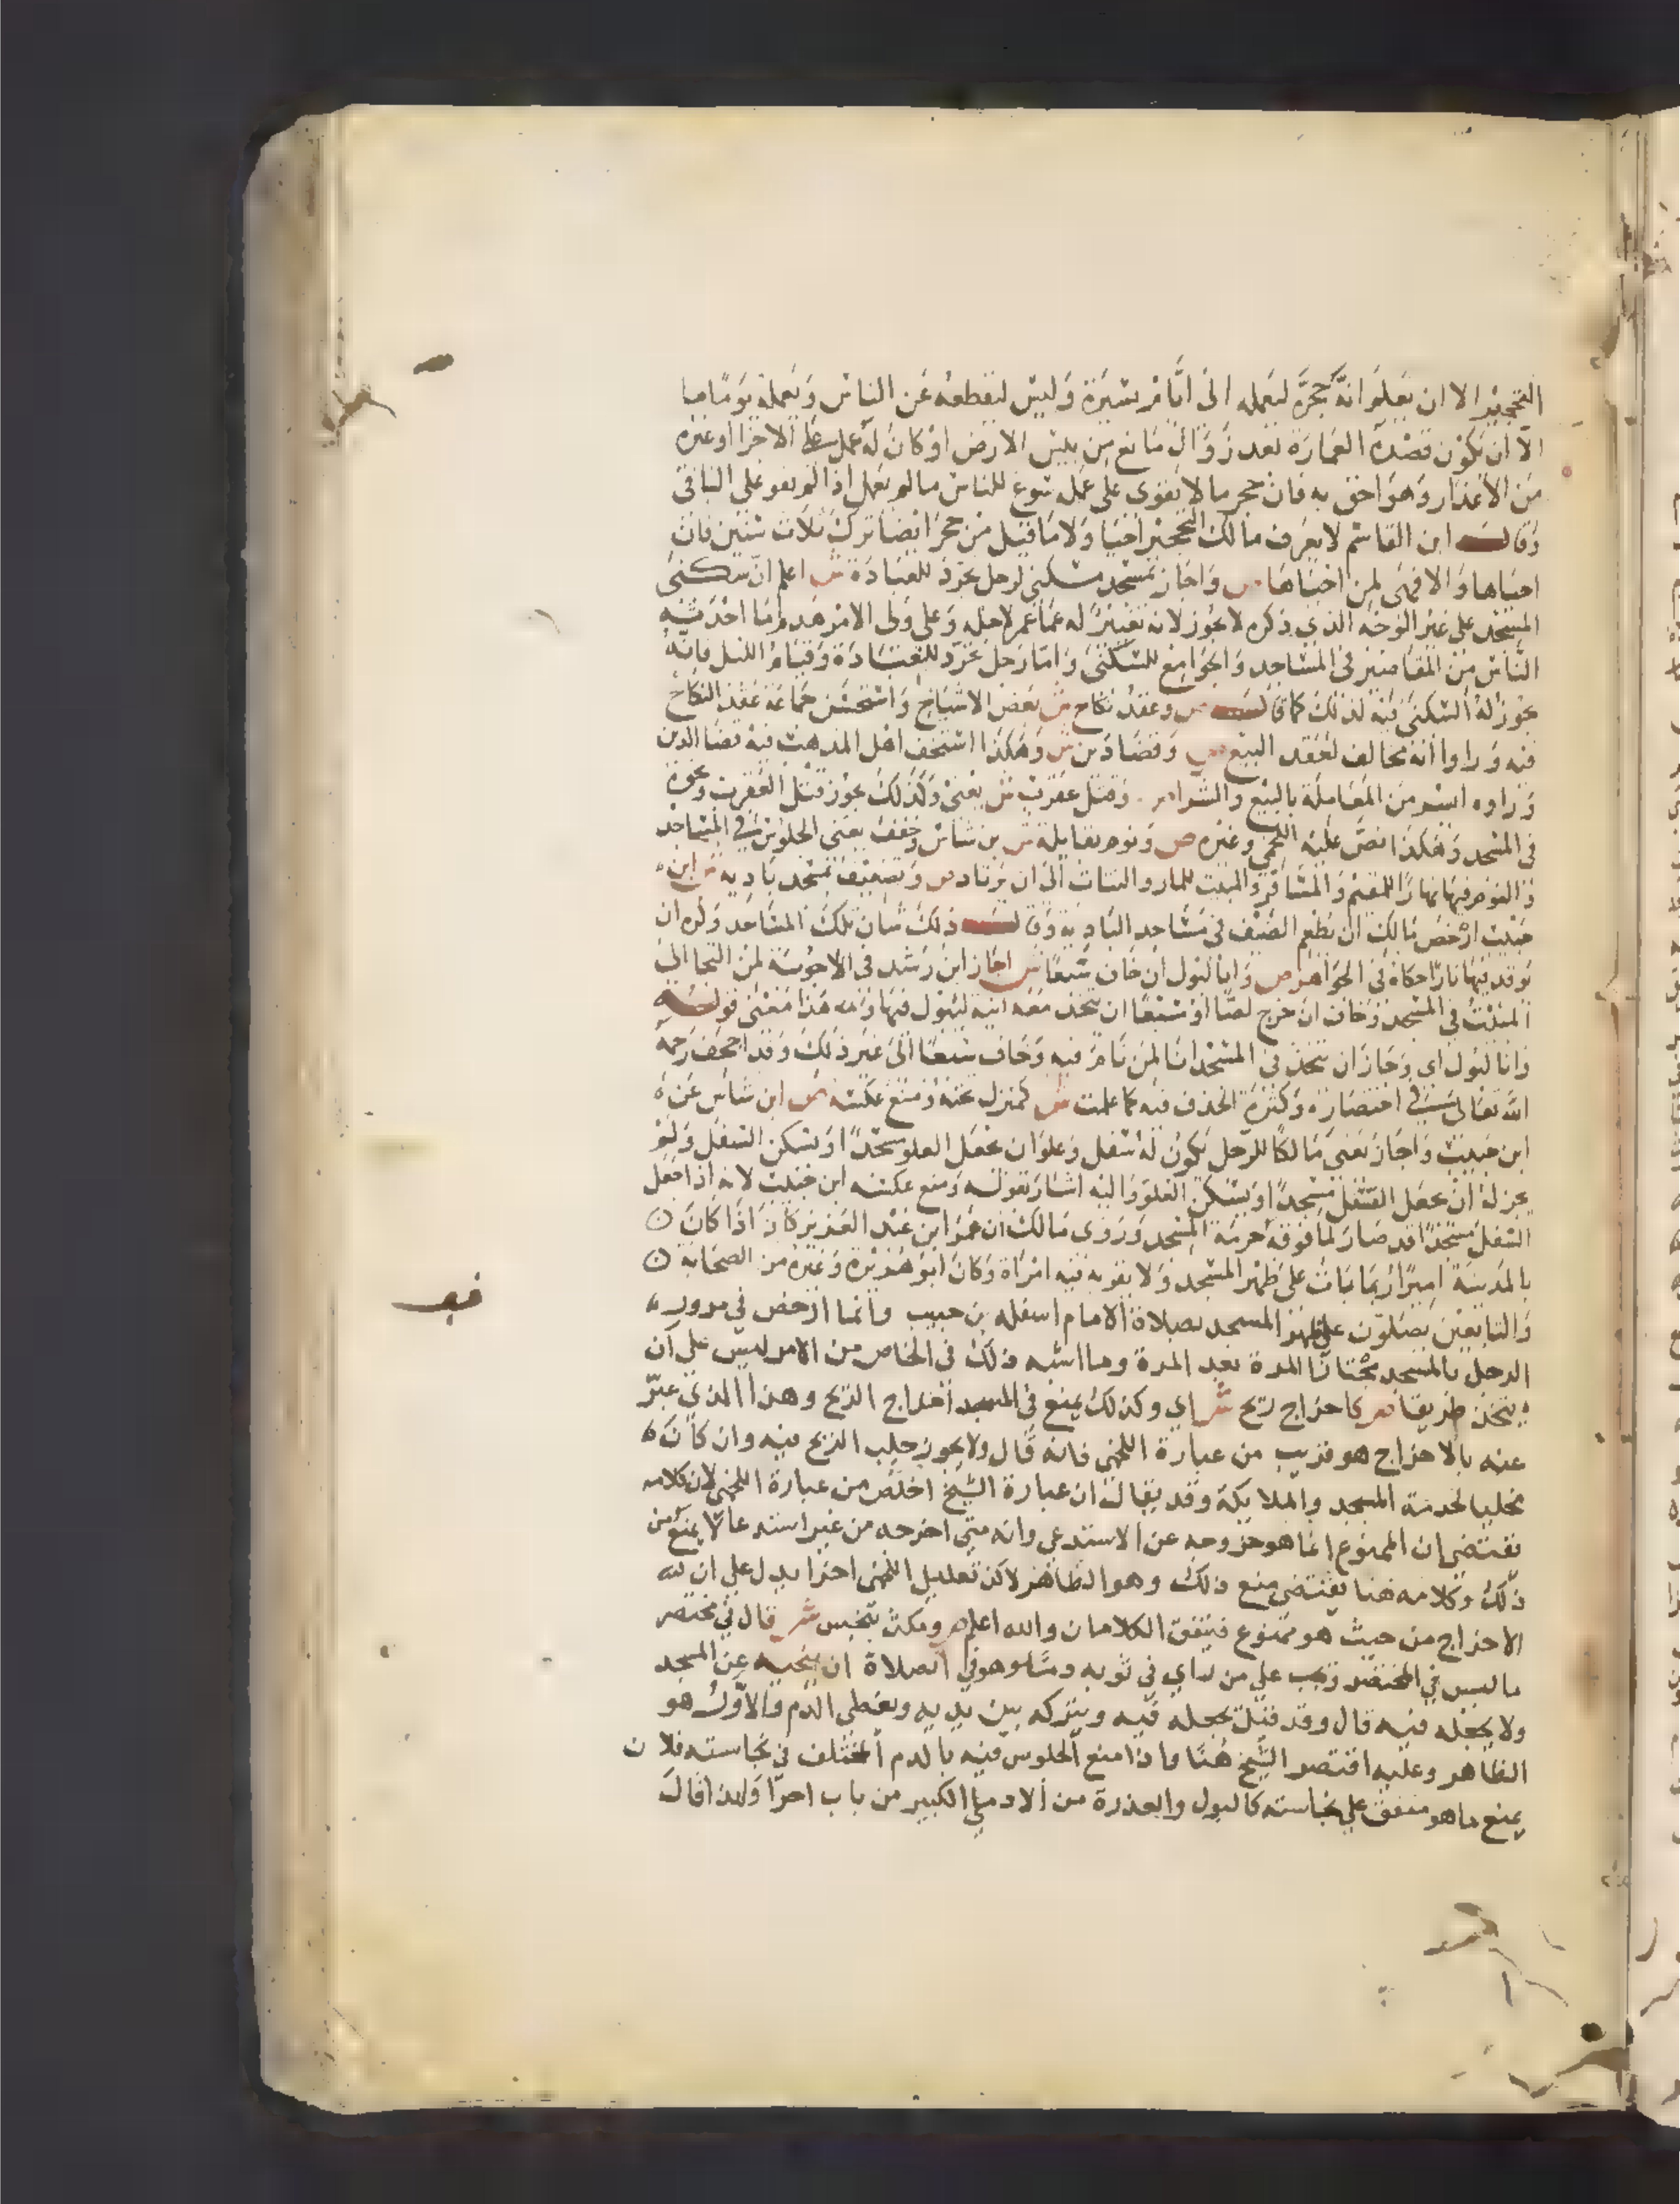 التحجير الا ان يعلم انه حجره ليعمله الى ايام يسيرة وليس ليقطعه عن الناس ويعمله يوما ما
الا ان يكون قصده العمارة بعد زوال مانع من يبس الارض او كان له عمل الاجرا او غيره
من الاعذار وهو احق به فان حجر ما لا يقوى على عمله شرع للناس ما لم يعمل اذا لم يقو على الباقى
وقال ابن القاسم لا يعرف مالك التحجير احيا ولا ما قيل من حجر ايضا ترك ثلاث سنين فان
احياها والا فهى لمن احياها ص واجاز بمسجد سكنى لرجل تجرد للعبادة ش اعلم ان سكنى
المسجد على غير الوجه الذي ذكره لا يجوز لانه تغيير له عما عمر لاجله وعلى ولى الامر هدم ما احدثه
الناس من المقاصير فى المساجد والجوامع للسكنى واما رجل تجرد للعبادة وقيام الليل فانه
يجوز له السكنى فيه لذلك كما قال ص وعقد نكاح ش بعض الاشياخ واستحسن جماعة عقد النكاح
فيه وراوا انه مخالف لعقد البيع ص وقضا دين ش وهكذا استخف اهل المذهب فيه قضا الدين
وراوه ايسر من المعاملة بالبيع والشرا ص وقتل عقرب ش يعنى وكذلك يجوز قتل العقرب ونحوه
فى المسجد وهكذا نص عليه اللخمي وغيره ص ونوم بقايلة ش بن شاس وخفف يعنى الجلوس في المساجد
والنوم فيها نهارا للمقيم والمسافر والمبيت للمار والبتات الى ان يرتاد ص وتضييف بمسجد بادية ش ابن
حبيب ارخص مالك ان يطعم الضيف فى مساجد البادية وقال ذلك شان تلك المساجد وكره ان
توقد فيها نارا حكاه فى الجواهر ص وانا لبول ان خاف سبعا ش اجاز ابن رشد فى الاجوبة لمن التجا الى
المبيت فى المسجد وخاف ان خرج لصا او سبعا ان يتخذ معه انية ليبول فيها وهذا معنى قوله
وانا لبول اى وجاز ان يتخذ فى المسجد انا لمن نام فيه وخاف سبعا الى غير ذلك وقد اجحف رحمه
الله تعالى في اختصاره وكثرة الحذف فيه كما علمت ش كمنزل تحته ومنع عكسه ش ابن شاس عن
ابن حبيب واجاز يعنى مالكا للرجل يكون له سفل وعلو ان يجعل العلو مسجدا ويسكن السفل ولم
يجز له ان يجعل السفل مسجدا ويسكن العلو واليه اشار بقوله ومنع عكسه ابن حبيب لانه اذا جعل
السفل مسجدا فقد صار لما فوقه حرمة المسجد وروى مالك ان عمر ابن عبد العزيز كان اذا كان
بالمدينة اميرا ربما بات على ظهر المسجد ولا يقربه فيه امراة وكان ابو هريرة وغيره من الصحابة
والتابعين يصلون على ظهر المسجد بصلاة الامام اسفله بن حبيب وانما ارخص في مرور
الرجل بالمسجد مجتازا المرة بعد المرة وما اشبه ذلك في الخاص من الامر ليس على ان
يتخذ طريقا ص كاخراج ريح ش اي وكذلك يمنع في المسجد اخراج الريح وهذا الذي عبر
عنه بالاخراج هو قريب من عبارة اللخمي فانه قال ولا يجوز جلب الريح فيه وان كان
مخليا لحرمة المسجد والملايكة وقد يقال ان عبارة الشيخ اخلص من عبارة اللخمي لان كلامه
يقتضي ان الممنوع انما هو خروجه عن الاستدعي وانه متى اخرجه من غير استدعا لا يمنع من
ذلك وكلامه هنا يقتضي منع ذلك وهو الظاهر لاكن تعليل اللخمي اخرا يدل على ان
الاخراج من حيث هو ممنوع فيتفق الكلامان والله اعلم ص ومكث بنجس ش قال في مختصر
ما ليس في المختصر وتجب على من راي في ثوبه دما وهو في الصلاة ان ينحيه عن المسجد
ولا يجعله فيه قال وقد قيل يجعله فيه ويتركه بين يديه ويغطي الدم والاول هو
الظاهر وعليه اقتصر الشيخ هنا واذا منع الجلوس فيه بالدم المختلف في نجاسته فلان
يمنع ما هو متفق على نجاسته كالبول والعذرة من الادمي الكبير من باب احرا ولهذا قال